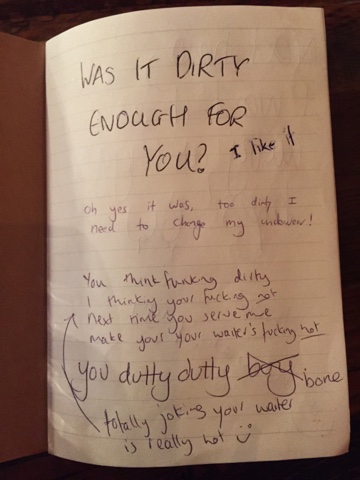 WAS IT DIRTY
ENOUGH FOR
YOU? I like it
Oh yes it was, too dirty I
need to change my underwear!
You think funking dirty
I thinky your fucking hot
Next time you serve me
make your your waiter's fucking hot
you dutty dutty boy bone
totally joking your waiter
is really hot